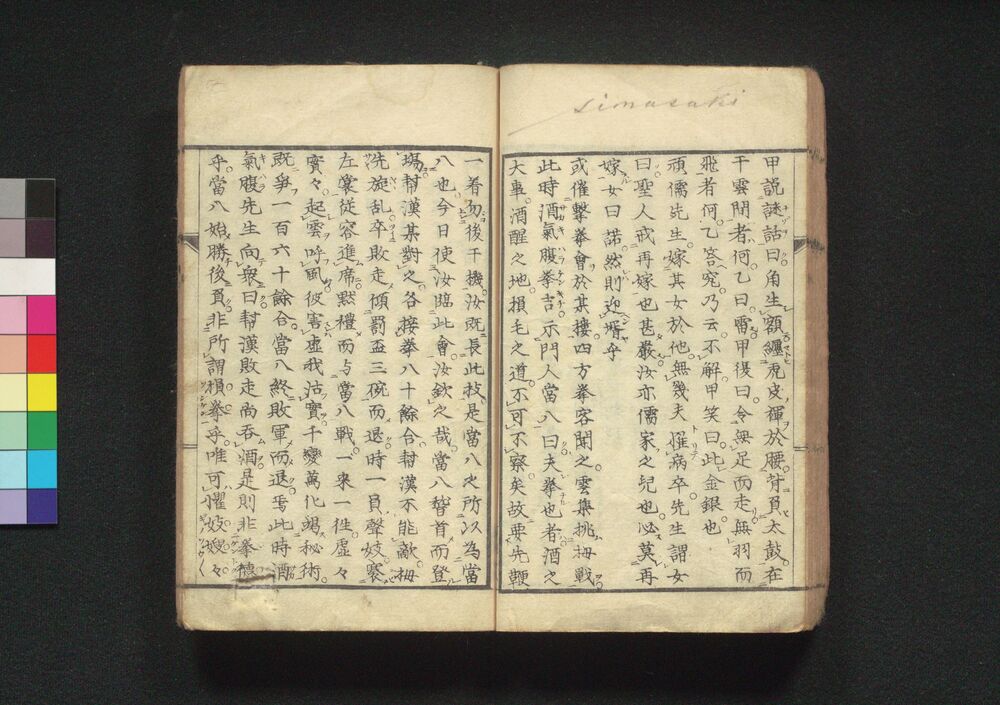 simasaki
甲説謎語曰角生額纏虎皮褌於腰背負太鼓在
于雲間者何乙曰雷甲復曰今無足而走無羽而
飛者何乙答究乃云不解甲笑曰此金銀也
頑儒先生嫁其女於他無幾夫罹病卒先生謂女
曰聖人戒再嫁也甚嚴汝亦儒家之兒也必莫再
嫁女曰諾然則迎壻乎
或催擊拳會於某樓四方拳客聞之雲集挑拇戰
此時酒氣腹拳吉示門人當八曰夫拳也者酒之
大事酒醒之地損毛之道不可不察矣故要先鞭
一着勿後干機汝既長此技是當八之所以為當
八也今日使汝臨此會汝欽之哉當八稽首而登
場幇漢某對之各接拳八十餘合幇漢不能敵拇
先旋乱卒敗走傾罰盃三碗而退時一員聲妓褰
左裳從容進席黙禮而与當八戰一來一徃虚々
實々起雲呼風彼害虚我沽實千變萬化竭秘術
既爭一百六十餘合當八終敗軍而退焉此時酒
氣腹先生向衆曰幇漢敗走尚吞酒是則非拳德
乎當八始勝後負非所謂損拳乎唯可懼妓嫂々